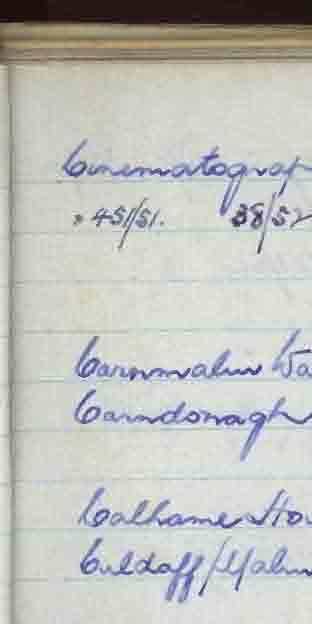 Cinematograp
451/51. 38/52
Carnmalin Wa
Carndonagh
Calhame Hou
Culdaff/Malin